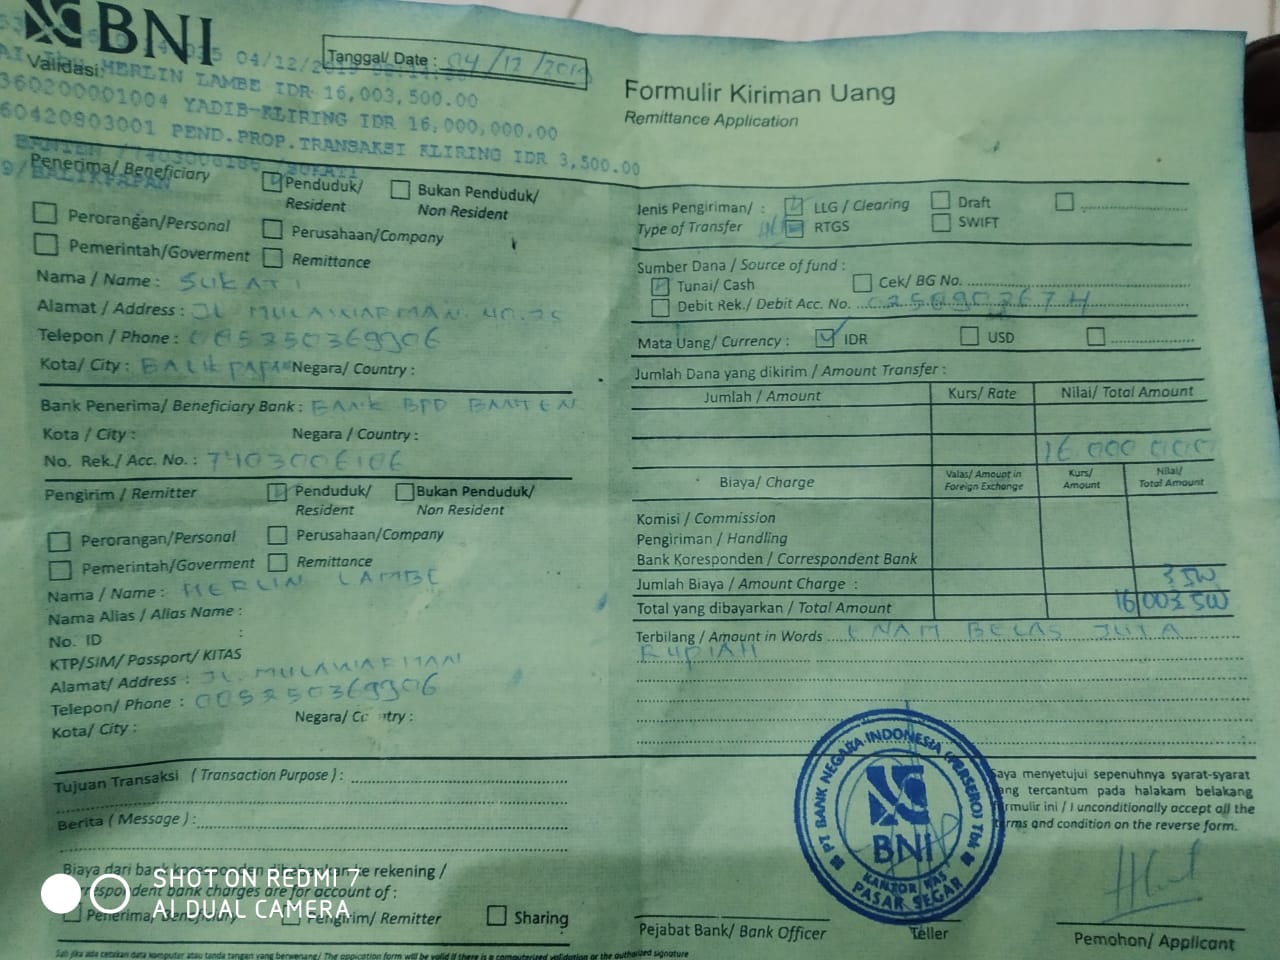 BNI
Validasi
04/12/2019
MERLIN LAMBE IDR 16,003,500.00
360200001004 YADIB-KLIRING IDR 16,000,000.00
60420903001 PEND.PROP.TRANSAKSI KLIRING IDR 3,500.00
BANTEN /7403006186 /SUKATI
9/BALIKPAPAN
Tanggal/ Date : 04/12/2019
Formulir Kiriman Uang
Remittance Application
Penerima/ Beneficiary
Penduduk/ Resident
Bukan Penduduk/ Non Resident
Perorangan/Personal
Perusahaan/Company
Pemerintah/Goverment
Remittance
Nama / Name : SUKATI
Alamat / Address : JL MULAWARMAN NO.25
Telepon / Phone : 085250369906
Kota/ City : BALIKPAPAN Negara/ Country :
Bank Penerima/ Beneficiary Bank : BANK BPD BANTEN
Kota / City : Negara / Country :
No. Rek./ Acc. No. : 7403006186
Pengirim / Remitter
Penduduk/ Resident
Bukan Penduduk/ Non Resident
Perorangan/Personal
Perusahaan/Company
Pemerintah/Goverment
Remittance
Nama / Name : MERLIN LAMBE
Nama Alias / Alias Name :
No. ID :
KTP/SIM/ Passport/ KITAS
Alamat/ Address : JL. MULAWARMAN
Telepon/ Phone : 085250369906
Kota/ City : Negara/ Country :
Tujuan Transaksi ( Transaction Purpose ) :
Berita ( Message ) :
Biaya dari bank koresponden dibebankan ke rekening /
Correspondent bank charges are for account of :
Penerima/ Beneficiary
Pengirim/ Remitter
Sharing
Jenis Pengiriman/ :
Type of Transfer
LLG / Clearing
Draft
RTGS
SWIFT
Sumber Dana / Source of fund :
Tunai/ Cash
Cek/ BG No.
Debit Rek./ Debit Acc. No.
Mata Uang/ Currency :
IDR
USD
Jumlah Dana yang dikirim / Amount Transfer :
Jumlah / Amount Kurs/ Rate Nilai/ Total Amount
16.000 000
Biaya/ Charge
Valas/ Amount in Foreign Exchange
Kurs/ Amount
Nilai/ Total Amount
Komisi / Commission
Pengiriman / Handling
Bank Koresponden / Correspondent Bank
Jumlah Biaya / Amount Charge : 3500
Total yang dibayarkan / Total Amount 16.003.500
Terbilang / Amount in Words ENAM BELAS JUTA
RUPIAH
PT BANK NEGARA INDONESIA (PERSERO) Tbk
BNI
KANTOR KAS
PASAR SEGAR
Saya menyetujui sepenuhnya syarat-syarat
yang tercantum pada halakam belakang
formulir ini / I unconditionally accept all the
terms and condition on the reverse form.
Pejabat Bank/ Bank Officer
Teller
Pemohon/ Applicant
SHOT ON REDMI 7
AI DUAL CAMERA